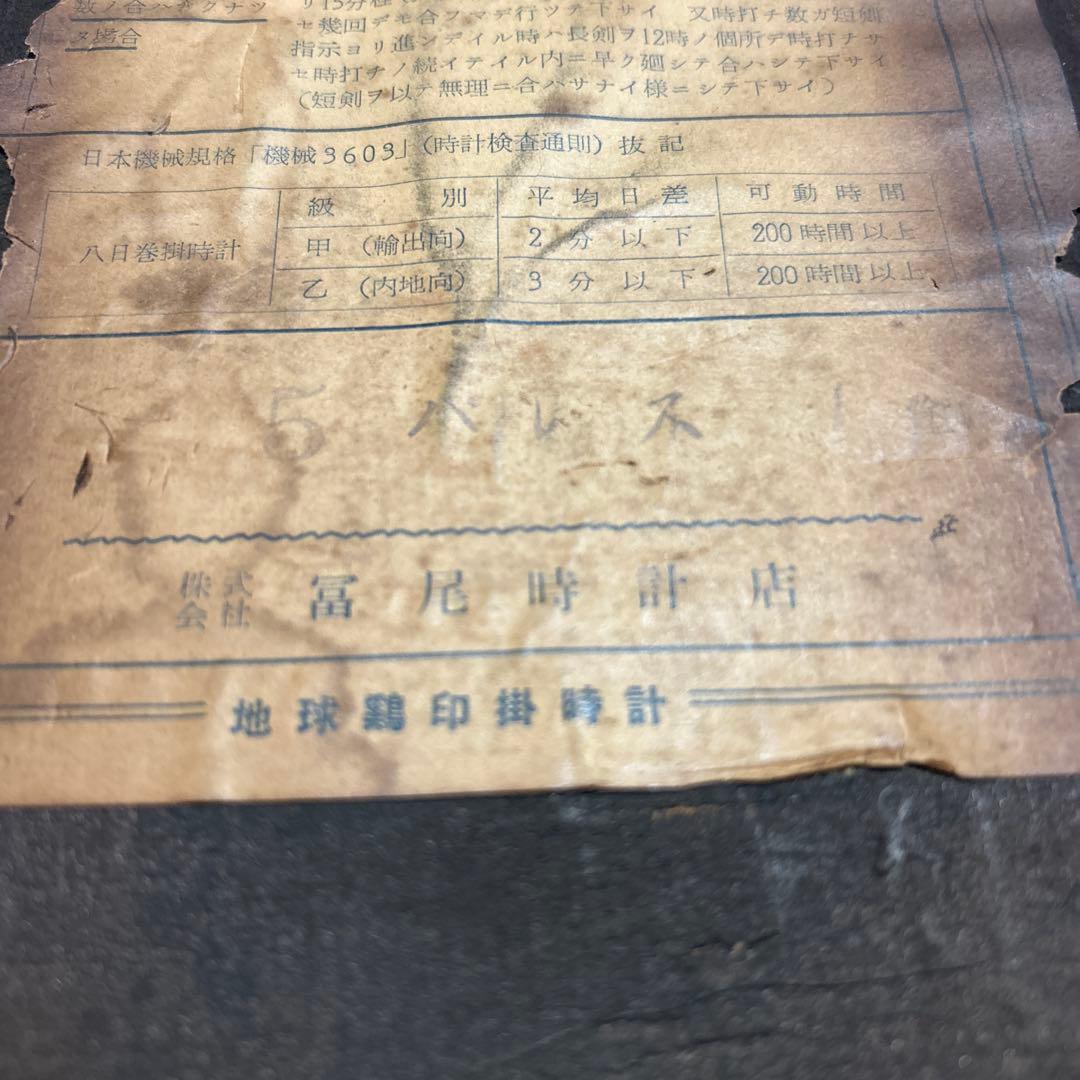 数ノ合ハナクナツ
タ場合
リ15分
セ幾回デモ合フマデ行ツテ下サイ 又時打チ数ガ短剣
指示ヨリ進ンデイル時ハ長剣ヲ12時ノ個所デ時打チサ
セ時打チノ続イテイル内ニ早ク廻シテ合ハシテ下サイ
(短剣ヲ以テ無理ニ合ハサナイ様ニシテ下サイ)
日本機械規格「機械3603」(時計検査通則) 抜記
八日巻掛時計
級別 平均日差 可動時間
甲 (輸出向) 2分以下 200時間以上
乙 (内地向) 3分以下 200時間以上
5
株式会社 冨尾時計店
地球鷄印掛時計